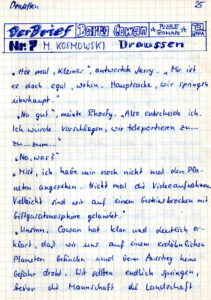 Draussen 25
Der Brief Barry Cowan
Nr. 7 M. KOSMOWSKI Draussen
„Hör mal, Kleiner", antwortete Jerry. „Mir ist
es doch egal, wohin. Hauptsache, wir springen
überhaupt."
„Na gut", meinte Rhosfy. „Also entscheide ich.
Ich würde vorschlagen, wir teleportieren zu...
zu... zum..."
„Na, was?"
„Mist, ich habe mir noch nicht mal den Pla-
neten angesehen. Nicht mal die Videoaufnahmen.
Vielleicht sind wir auf einem Gesteinsbrocken mit
Giftgasatmosphäre gelandet."
„Unsinn. Cowan hat klar und deutlich er-
klärt, daß wir uns auf einem erdähnlichen
Planeten befinden und beim Ausstieg keine
Gefahr droht. Wir sollten endlich springen,
bevor die Mannschaft die Landschaft